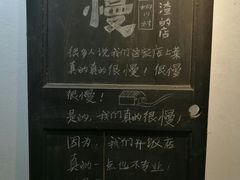 慢
渣的店
很多人说我们这家店上菜
真的真的很慢！很慢
很慢！
是的，我们真的很慢！
因为，我们开饭店
真的一点也不专业